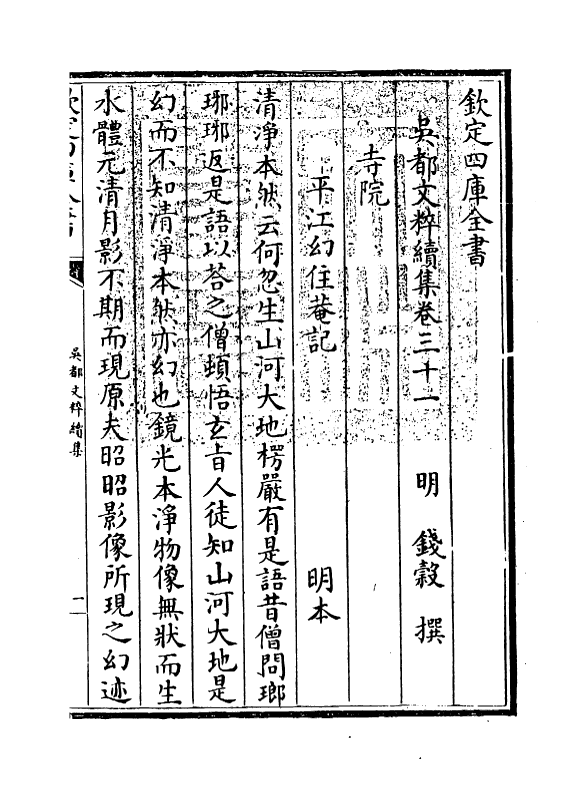 欽定四庫全書
吳都文粹續集卷三十一　明　錢穀　撰
寺院
平江幻住菴記　明本
清淨本然云何忽生山河大地楞嚴有是語昔僧問瑯
琊琊返是語以荅之僧頓悟玄旨人徒知山河大地是
幻而不知清淨本然亦幻也鏡光本淨物像無狀而生
水體元清月影不期而現原夫昭昭影像所現之幻迹
欽定四庫全書
吳都文粹續集
一